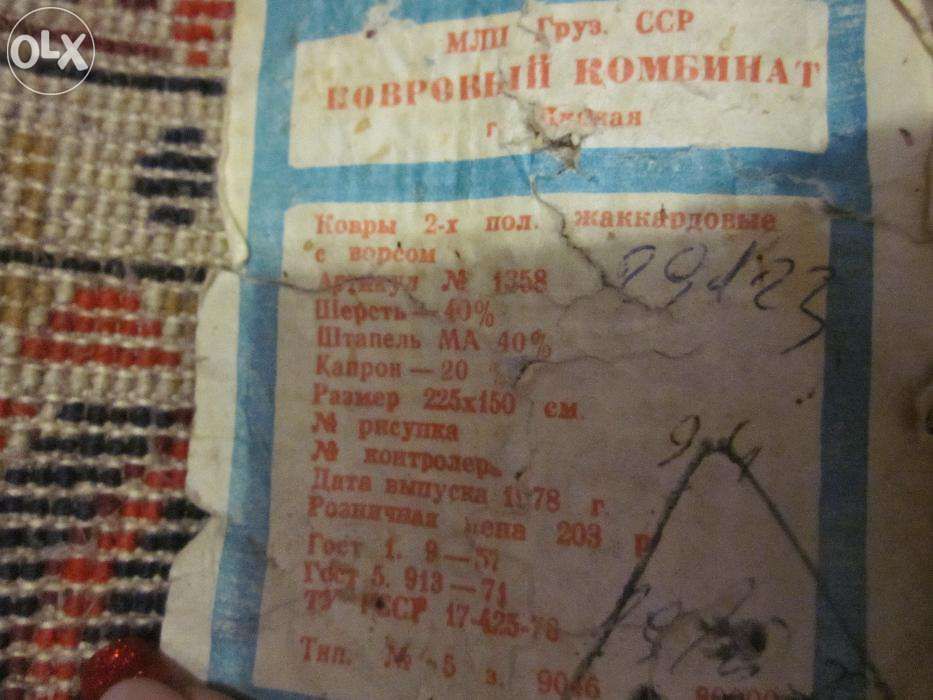 OLX
МЛП Груз. ССР
КОВРОВЫЙ КОМБИНАТ
г.
Ковры 2-х пол. жаккардовые
с ворсом
Артикул № 1358
Шерсть — 40%
Штапель МА 40%
Капрон — 20
Размер 225х150 см.
№ рисунка
№ контролера
Дата выпуска 1978 г.
Розничная цена 203 р
Гост 1. 9—57
Гост 5. 913—71
ТУ ГССР 17-425-78
Тип. № 5 з. 9046